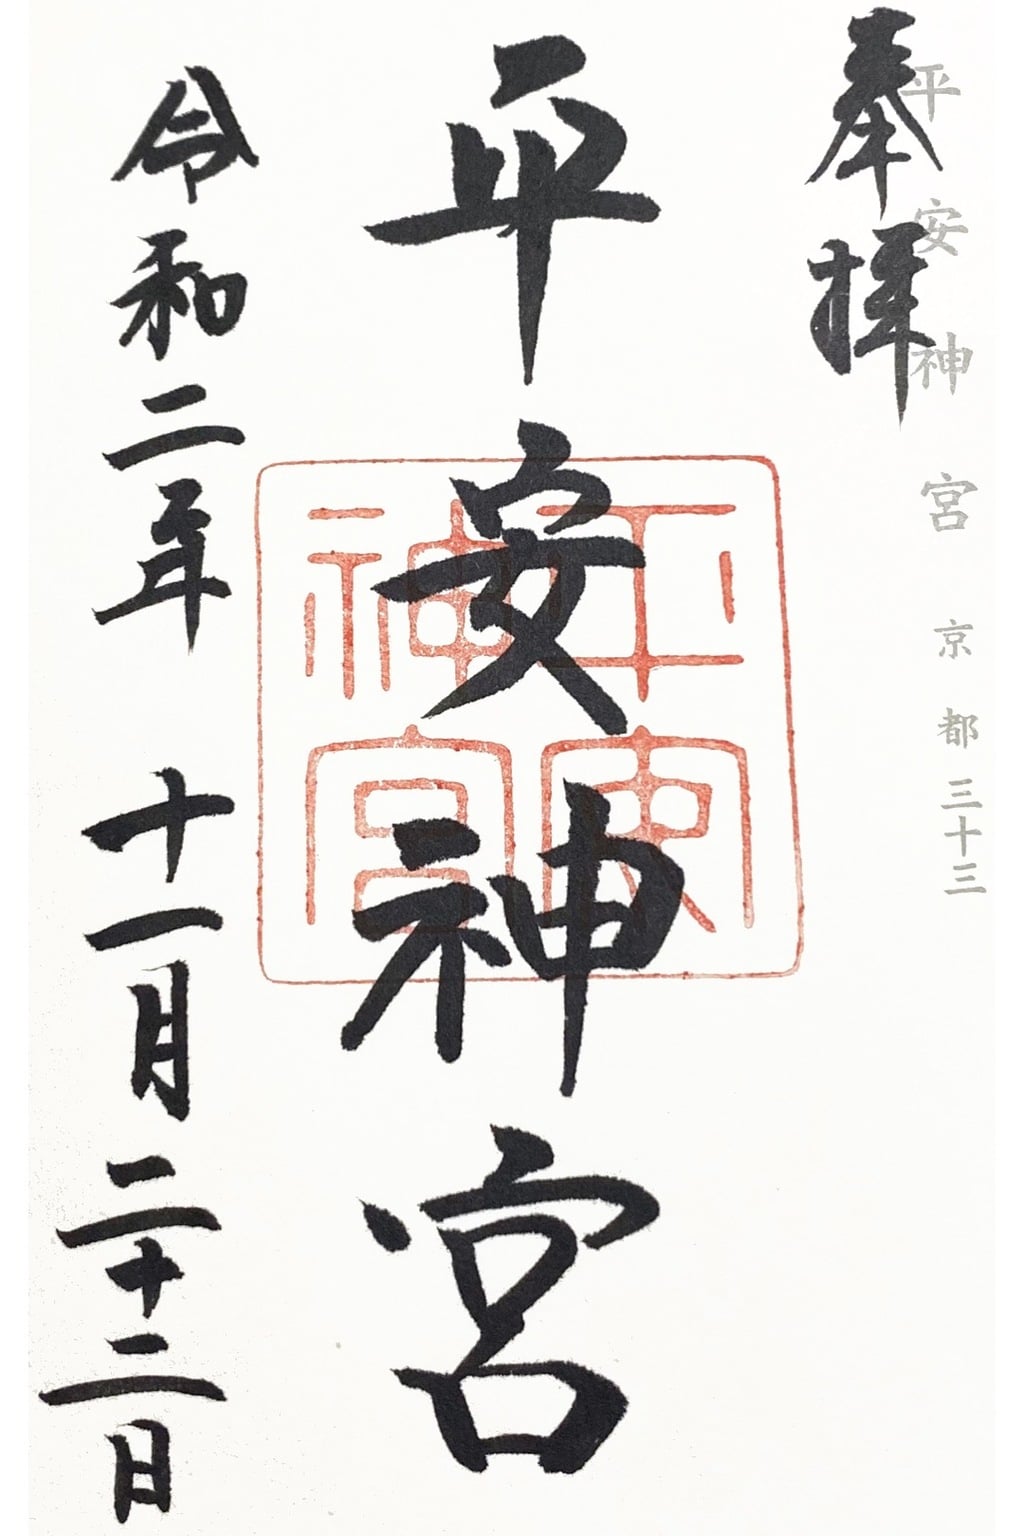 平安神宮 京都 三十三
奉拝
平安神宮
平安神宮
令和二年 十一月二十二日